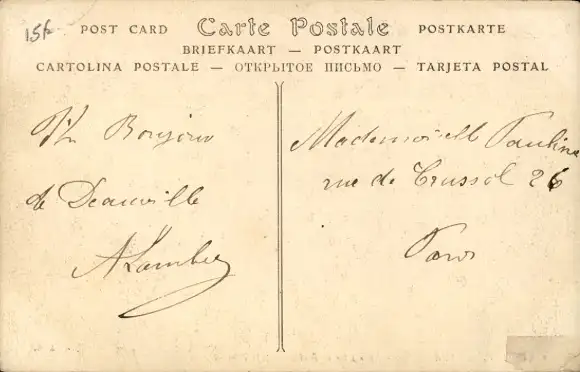 15f
POST CARD Carte Postale POSTKARTE
BRIEFKAART — POSTKAART
CARTOLINA POSTALE — ОТКРЫТОЕ ПИСЬМО — TARJETA POSTAL
Un Bonjour
de Deauville
A Lambert
Mademoiselle Pauline
rue de Crussol 26
Paris